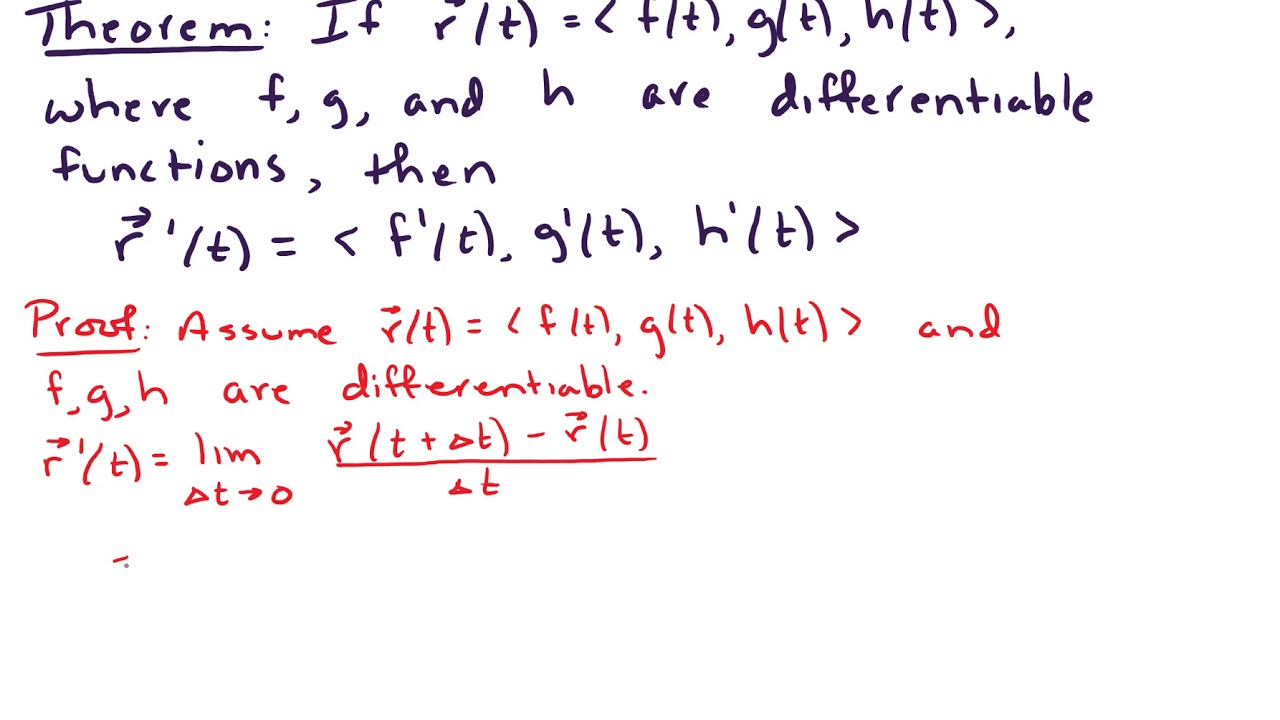 Theorem: If r⃗(t) = < f(t), g(t), h(t) >,
where f, g, and h are differentiable
functions, then
r⃗'(t) = < f'(t), g'(t), h'(t) >
Proof: Assume r⃗(t) = < f(t), g(t), h(t) > and
f, g, h are differentiable.
r⃗'(t) = lim Δt→0 (r⃗(t + Δt) - r⃗(t)) / Δt